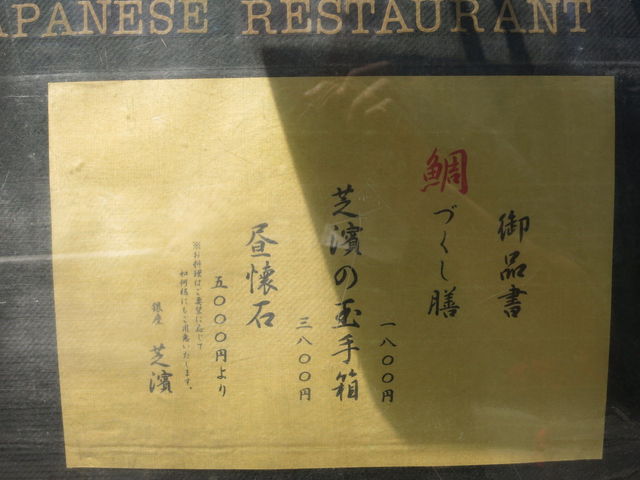 APANESE RESTAURANT
御品書
鯛づくし膳
一八〇〇円
芝濱の玉手箱
三八〇〇円
昼懐石
五〇〇〇円より
※お料理はご要望に応じて
如何様にもご用意いたします。
銀座 芝濱